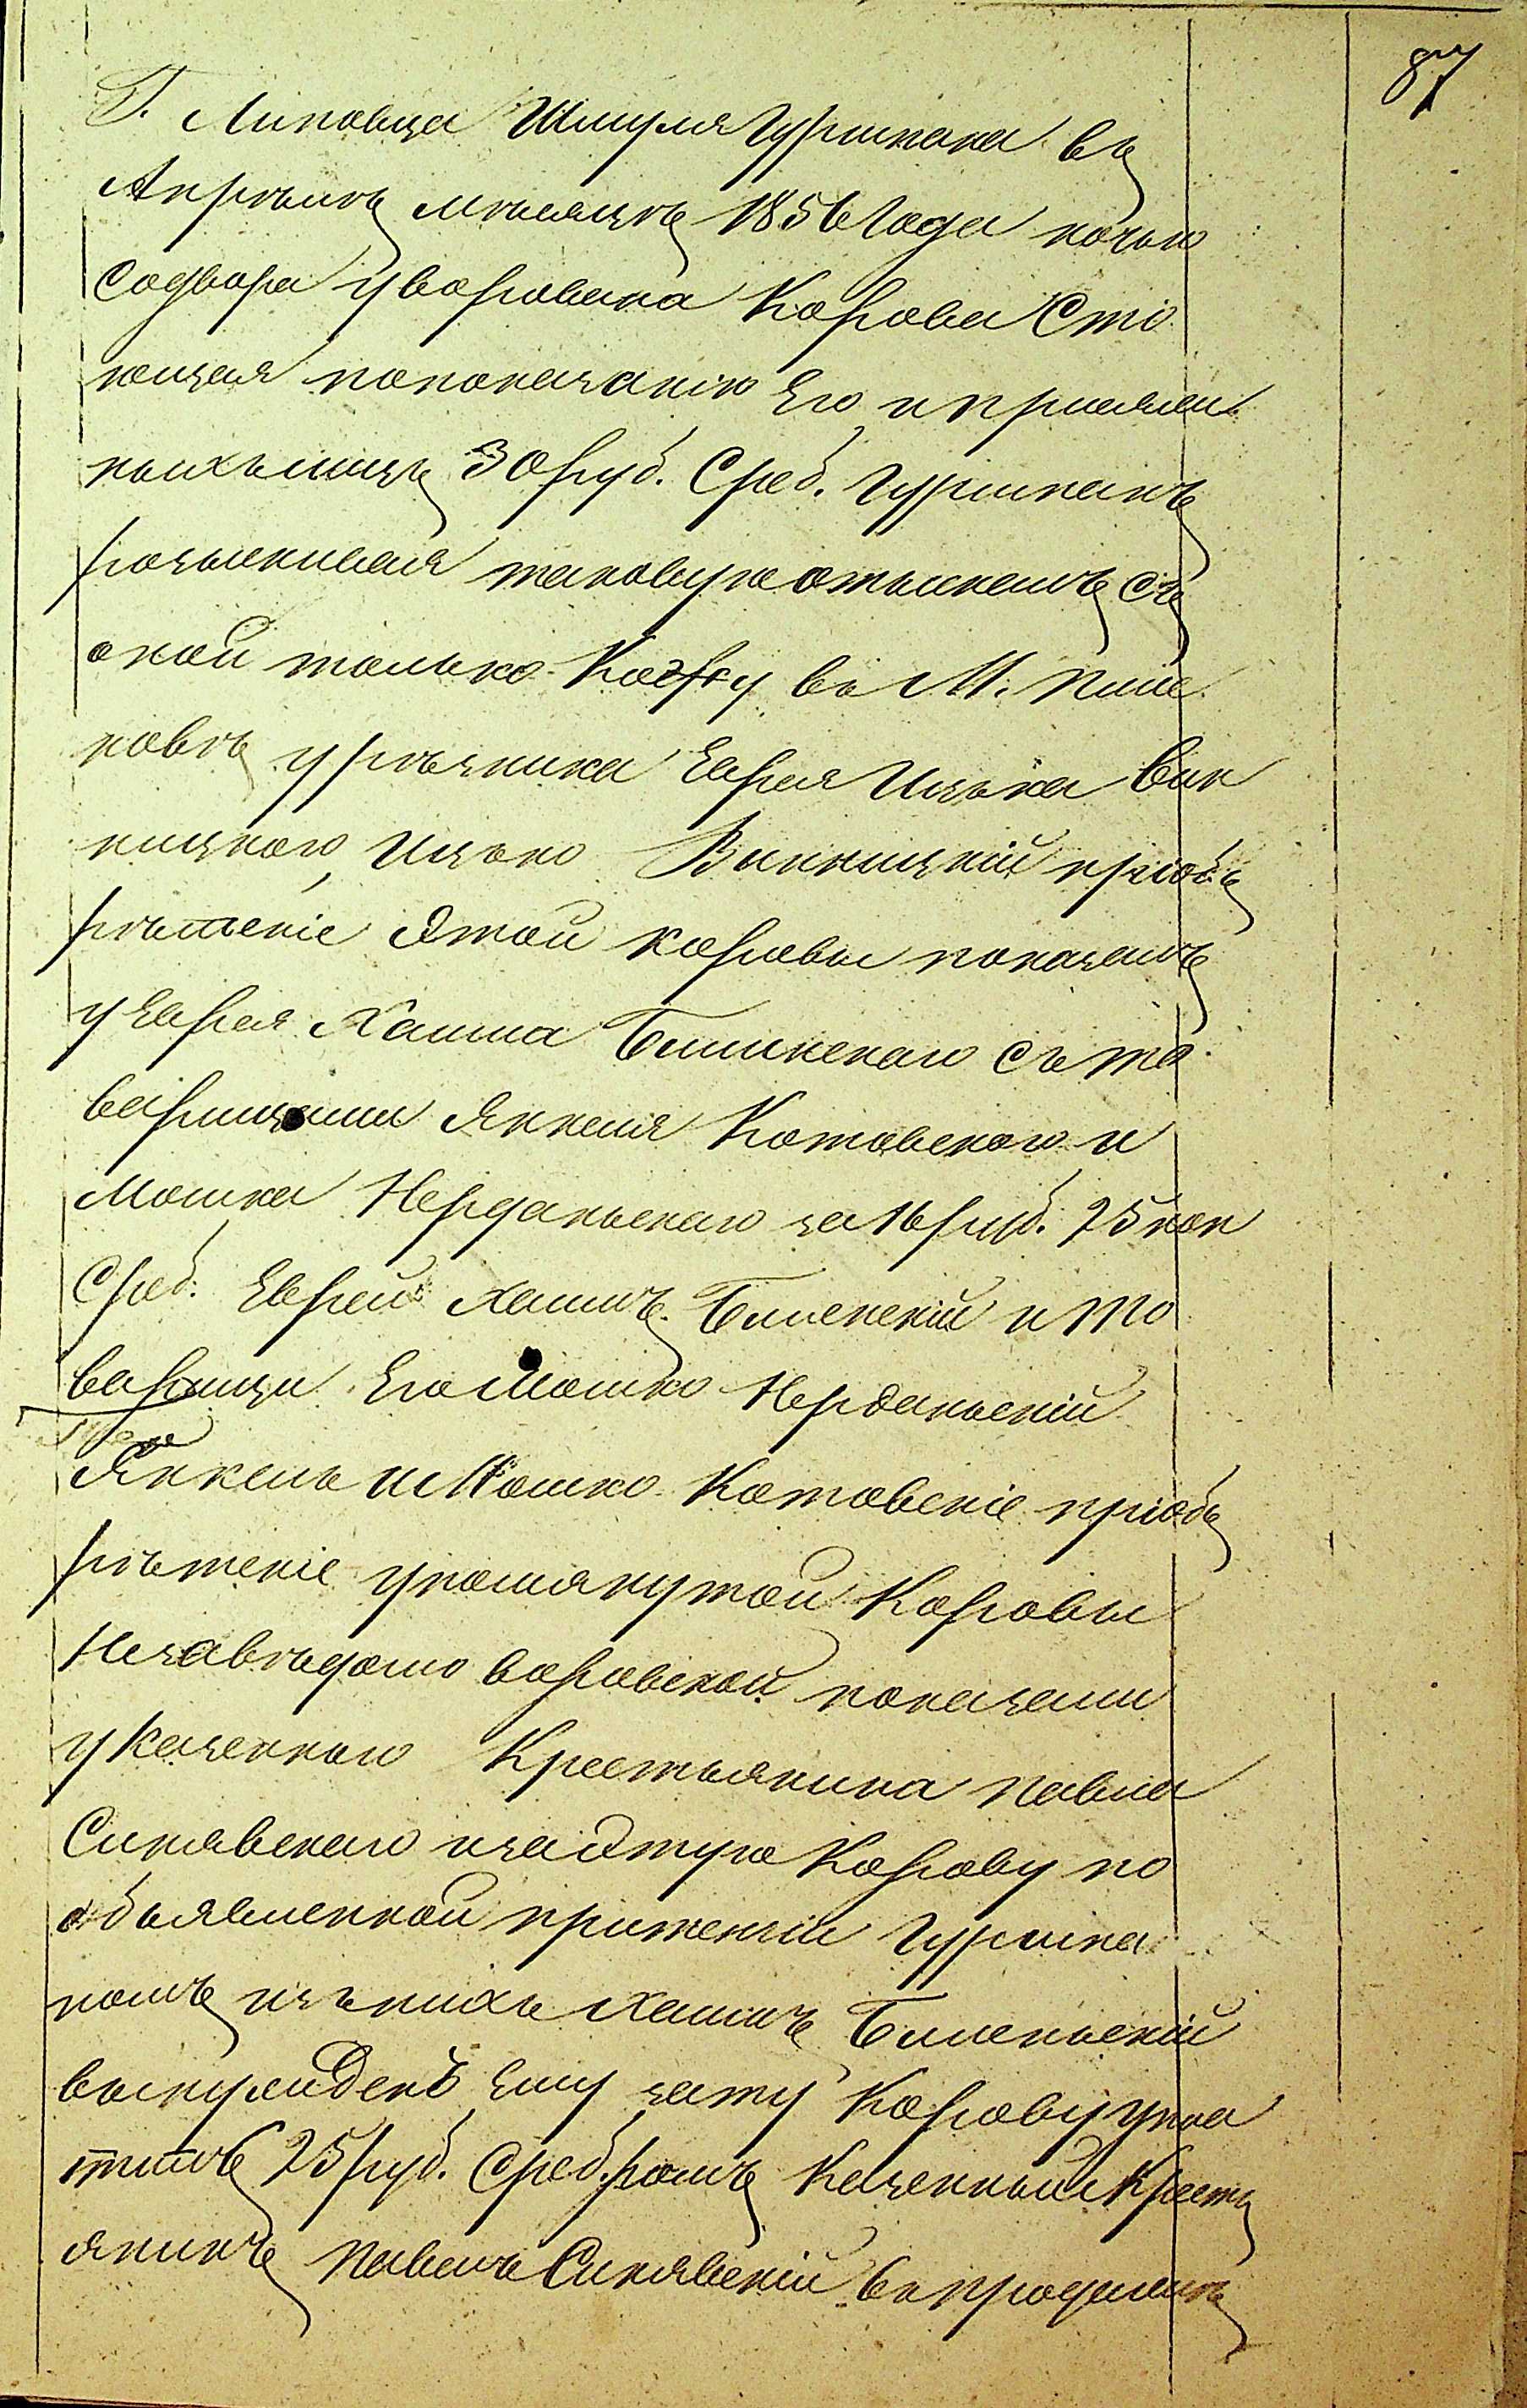 87
Г. Липовца Шмуля Гуршмана въ
Апрѣлѣ мѣсяцѣ 1856 Года ночью
Содвора уворована Корова Сто
ющая попоказанію Его и присяж
ныхъ лицъ 30 руб. Среб. Гуршманъ
розыскивая таковую отыскалъ съ
оной только Кожу въ М.
ковѣ у рѣзника Еврея Ицька Вин
ницкаго, Ицько Винницкій пріобъ
рѣтеніе Этой коровы показалъ
у Еврея Хаима Билинскаго съ то
варищами Янкеля Котовскаго и
Мошка Нерданьскаго за 16 руб. 25 коп
Среб. Еврей Хаимъ Билинскій и то
варищи Его Мошко Нерданьскій
Янкель и Мошко Котовскіе пріобъ
рѣтеніе упомянутой Коровы
Незавѣдомо воровской показали
у Казеннаго Крестьянина Павла
Синявскаго и за Этую Корову по
объявленной притензіи Гуршма
номъ изънихъ Хаимъ Билиньскій
ему зату Корову упла
тилъ 25 руб. Среб.ромъ Казенный Кресть
янинъ Павелъ Синявскій въ продажѣ